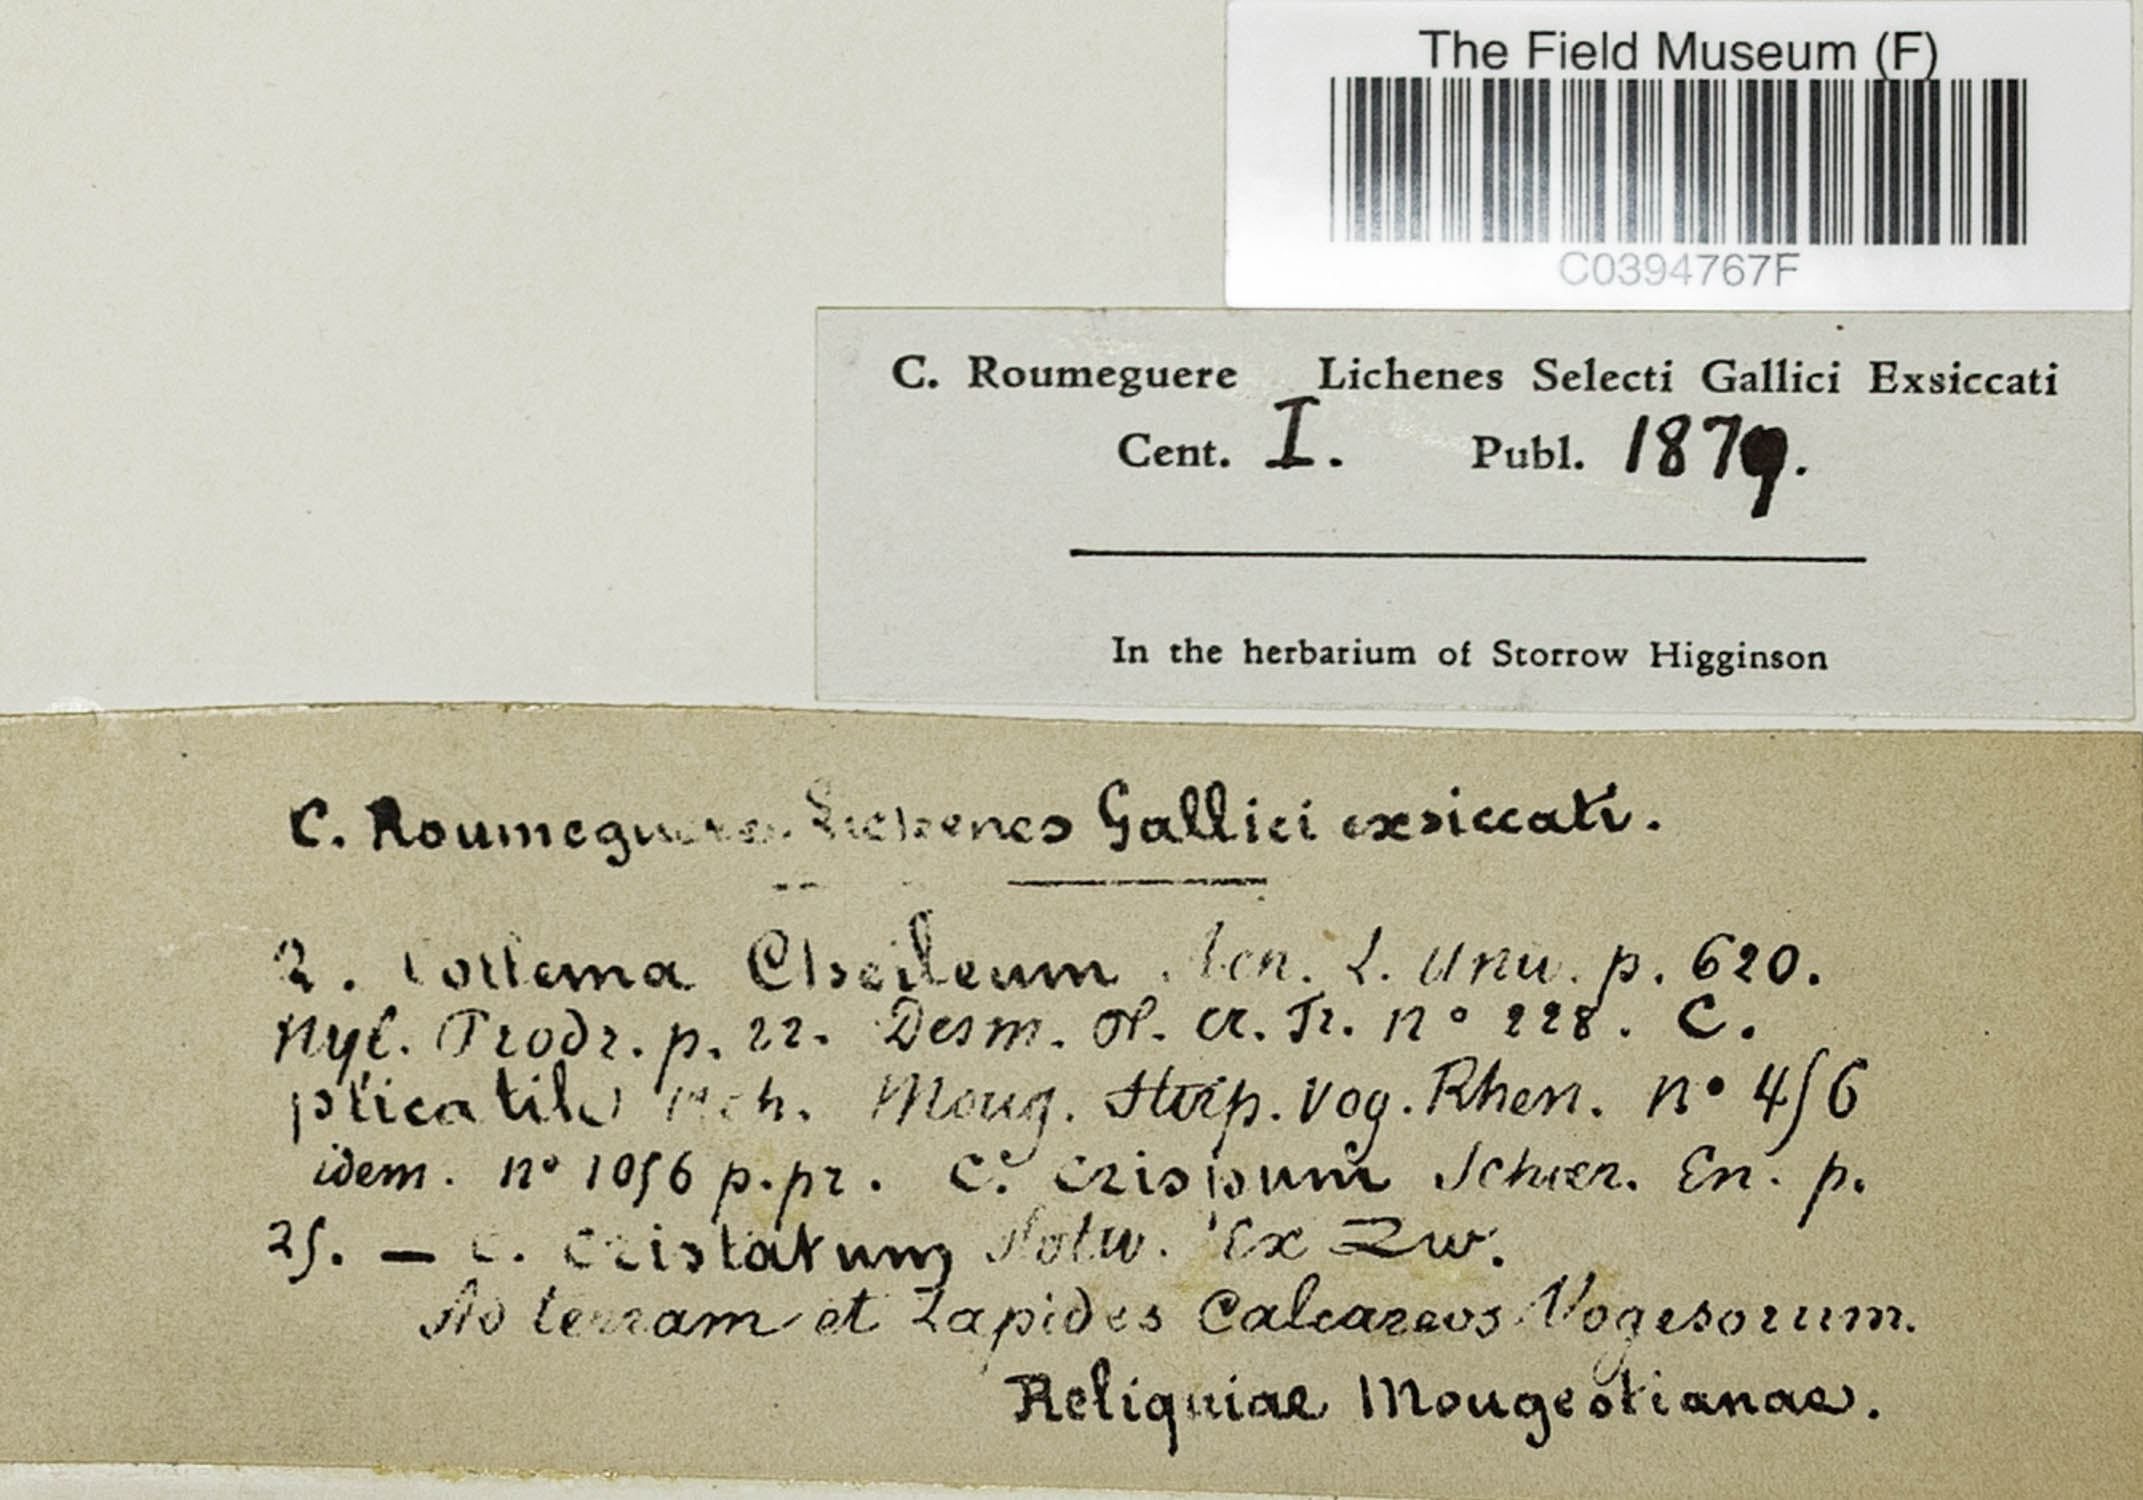 The Field Museum (F)
C0394767F
C. Roumeguere Lichenes Selecti Gallici Exsiccati
Cent. I. Publ. 1879.
In the herbarium of Storrow Higginson
C. Roumeguere. Lichenes Gallici exsiccati.
2. Collema Cheileum Ach. L. Univ. p. 620.
Nyl. Prodr. p. 22. Desm. Pl. cr. Fr. n° 228. C.
plicatile Ach. Moug. Stirp. Vog. Rhen. n° 456
idem. n° 1056 p. pr. C. crispum Schær. En. p.
25. — C. cristatum Ex Zw.
Ad terram et Lapides Calcareos Vogesorum.
Reliquiae Mougeotianae.